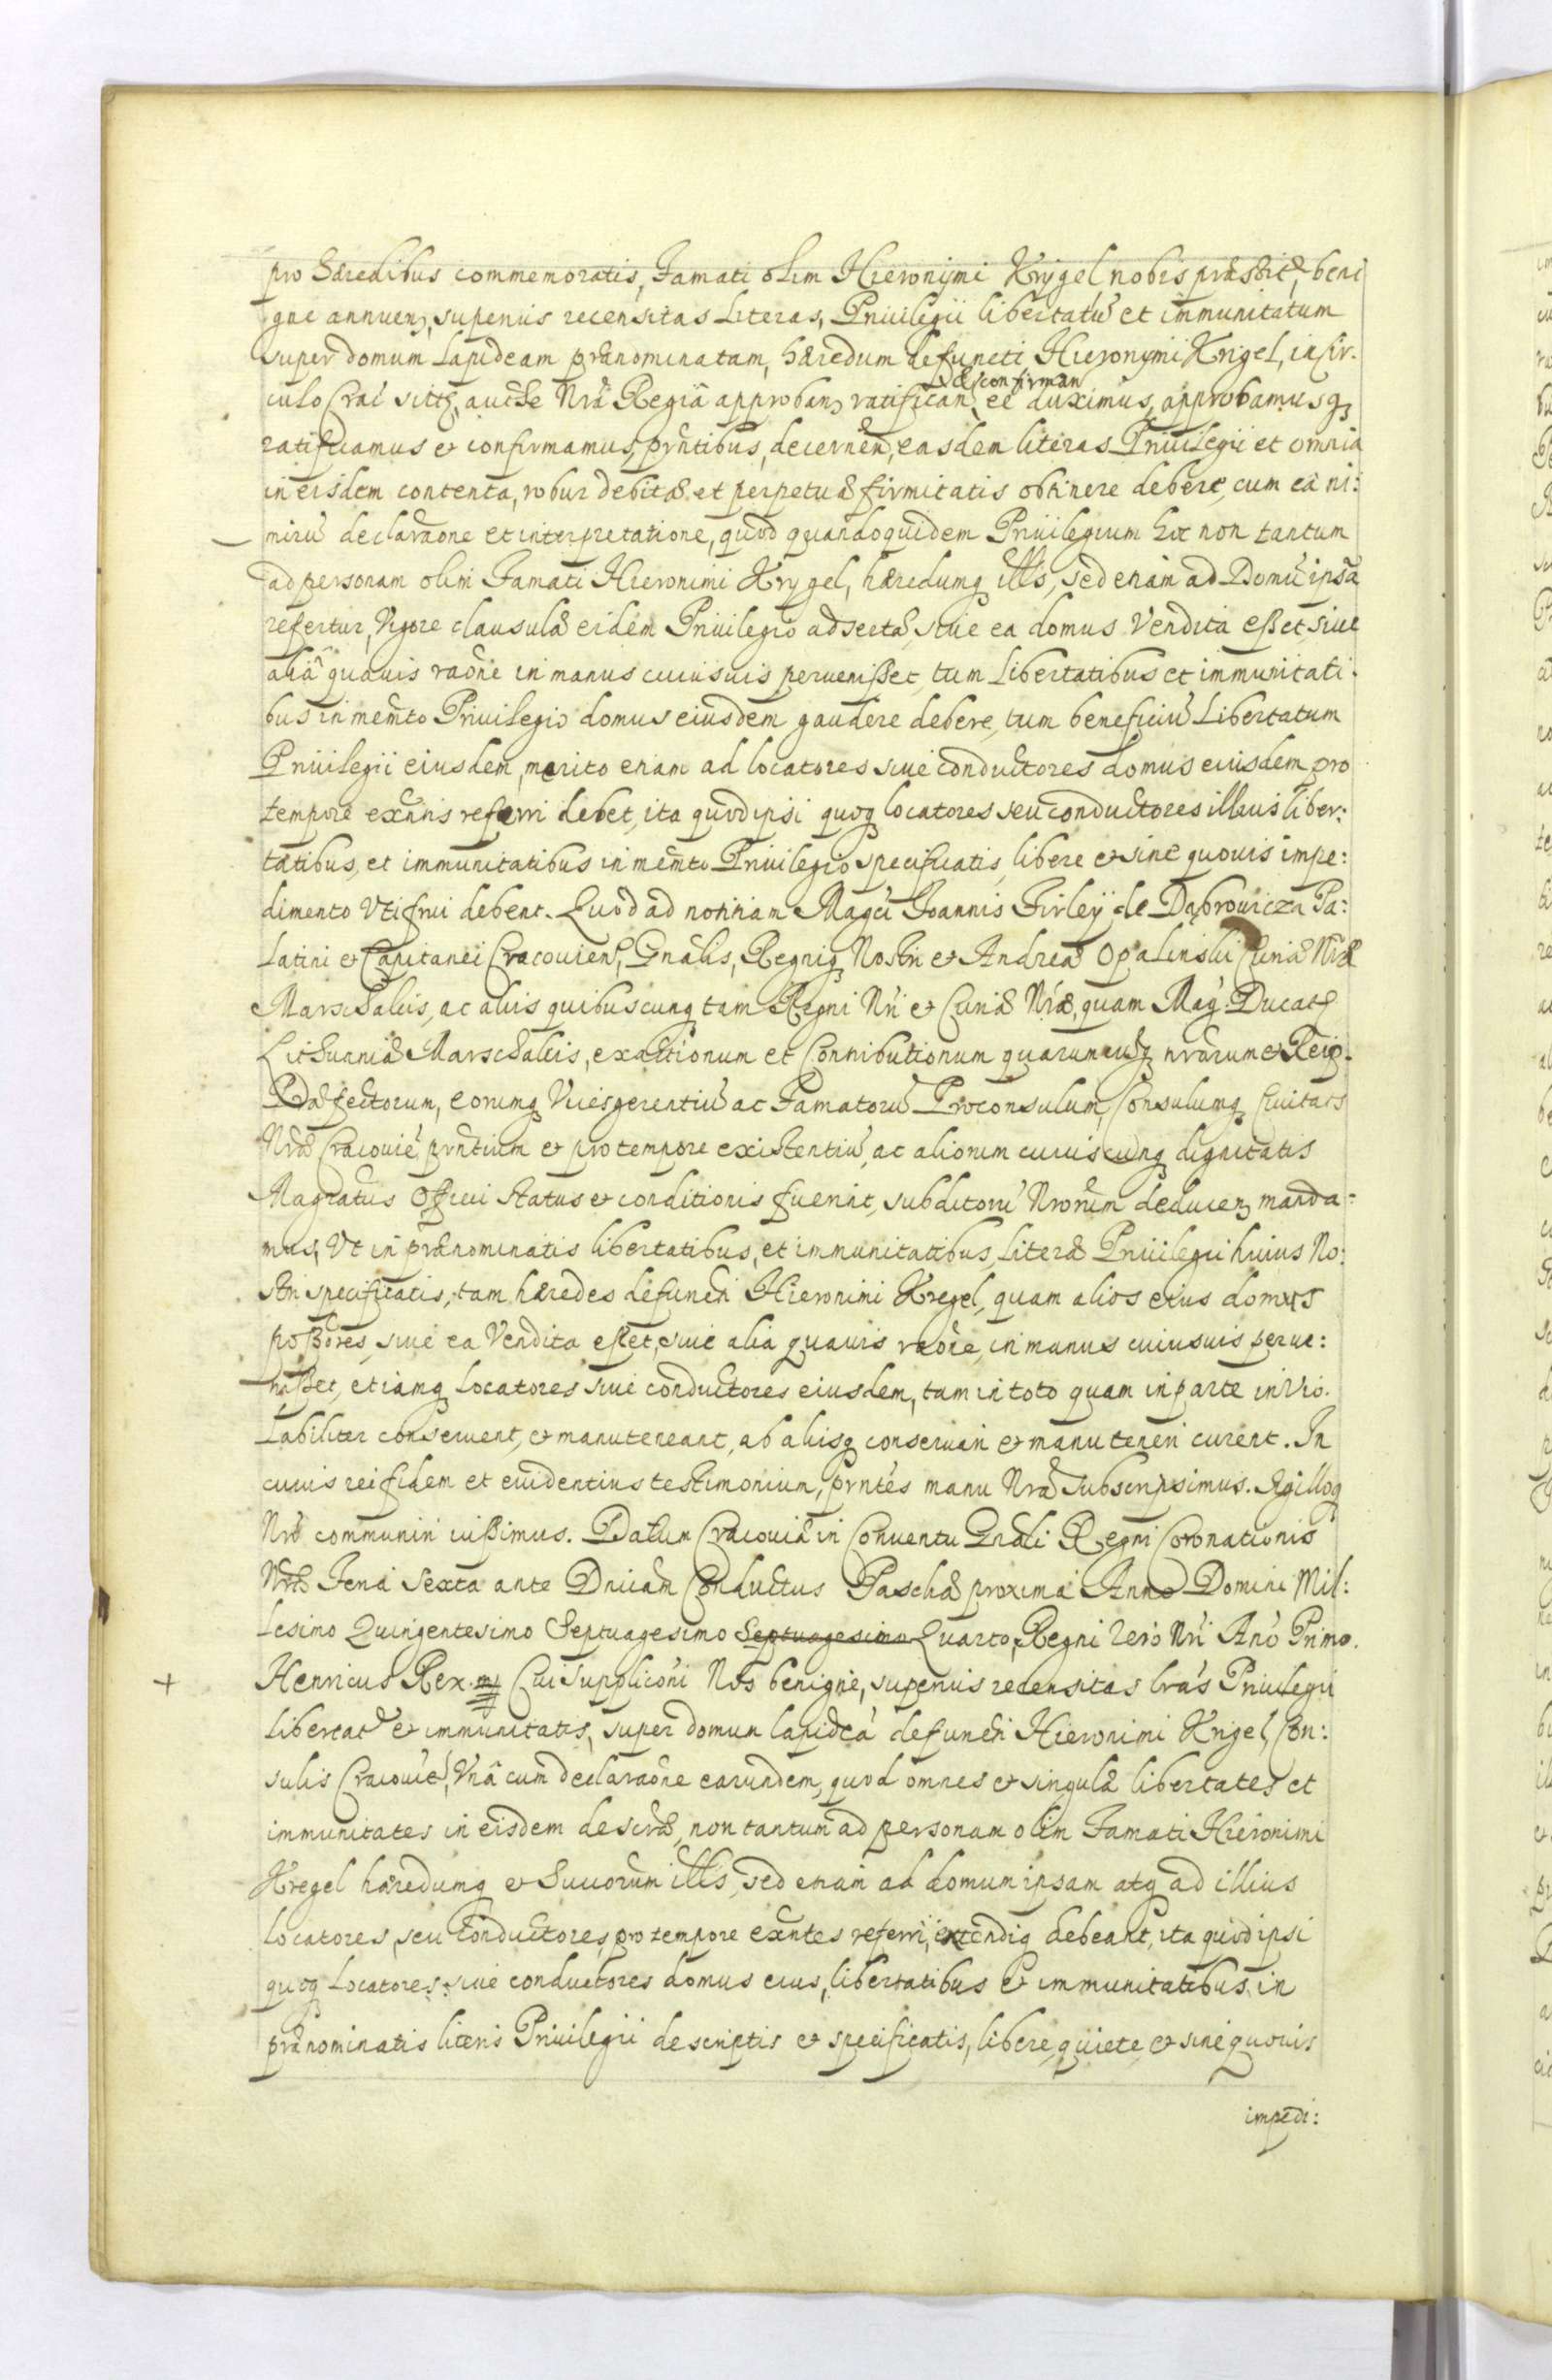 pro hæredibus commemoratis, Famati olim Hieronymi Krygel nobis præstitæ, beni
gne annuen, superius recensitas Literas, Priuilegii libertatū et immunitatum
super domum Lapideam prænominatam, hæredum defuncti Hieronymi Krigel, in Cir-
culo Craī sitā, aucthe Nrā Regiā approban ratifican et confirman eē duximus, approbamusq
ratificamus et confirmamus, prntibus, decernen, easdem literas Priuilegii et omnia
in eisdem contenta, robur debitæ et perpetuæ firmitatis obtinere debere, cum eā ni:
mirū declaraōne et interpretatione, quod quandoquidem Priuilegium hoc non tantum
ad personam olim Famati Hieronimi Krygel, hæredumq illīs, sed etiam ad Domū ipsā
refertur, Vigore clausulæ eidem Priuilegio adiectæ, siue ea domus Vendita esset, siue
aliâ quauis raōne in manus cuiusuis peruenisset, tum Libertatibus et immunitati-
bus in memto Priuilegio domus eiusdem gaudere debere, tum beneficiū Libertatum
Priuilegii eiusdem, merito etiam ad locatores siue conductores domus eiusdem pro
tempore exnīs referri debet, ita quod ipsi quoq locatores seu conductores illius liber:
tatibus, et immunitatibus in memto Priuilegio specificatis, libere et sine quouis impe:
dimento Vti frui debent. Quod ad notitiam Magci Joannis Firleÿ de Dąbrowicza Pa:
Latini et Capitanei Cracouien, Gnālis, Regniq Nostri et Andreæ Opalinski Curiæ Nræ
Marschalcis, ac aliis quibuscunq tam Regni Nri et Curiæ Nræ, quam Mag. Ducatq
Lithuaniæ Marschalcis, exactionum et Contributionum quarumcunq nrarum et Reip.
Præfectorum, eorumq Vicesgerentiū ac Famatorū Proconsulum, Consulumq Ciuitatis
Nræ Cracouien prntium et pro tempore existentiū, ac aliorum cuiuscunq dignitatis
Magratus Officii Status et conditionis fuerint, subditorū Nrorum deducen, manda:
mus, Vt in prænominatis libertatibus, et immunitatibus, Literis Priuilegii huius No:
stri specificatis, tam hæredes defuncti Hieronimi Kregel, quam alios eius domus
possores, siue ea Vendita esset, siue alia quauis raōne, in manus cuiusuis perue:
nisset, etiamq Locatores siue conductores eiusdem, tam in toto quam in parte inVio-
Labiliter conseruent, et manuteneant, ab aliisq conseruari et manu teneri curent. In
cuius rei fidem et euidentius testimonium, prntes manu Nra subscripsimus. Sigilloq
Nro communiri iussimus. Datum Cracouiæ in Conuentu Gnāli Regni Coronationis
Nræ Feria Sexta ante Dnicam Conductus Paschæ proxima Anno Domini Mil:
Lesimo Quingentesimo Septuagesimo Septuagesimo Quarto, Regni Vero Nri Ano Primo.
Henricus Rex. mp Cui Supplicōni Nos benigne, superius recensitas lras Priuilegii
Libertat et immunitatis, super domum lapideā defuncti Hieronimi Krigel, Con:
sulis Cracouien, Vnâ cum declaraōne earundem, quod omnes et singulæ libertates et
immunitates in eisdem descræ, non tantum ad personam olim Famati Hieronimi
Kregel hæredumq et Succorum illīs, sed etiam ad domum ipsam atq ad illius
Locatores, seu conductores, pro tempore exntes referri, extendiq debeant, ita quod ipsi
quoq Locatores, siue conductores domus eius, libertatibus et immunitatibus in
prænominatis literis Priuilegii descriptis et specificatis, libere, quiete, et sine quouis
impedi: